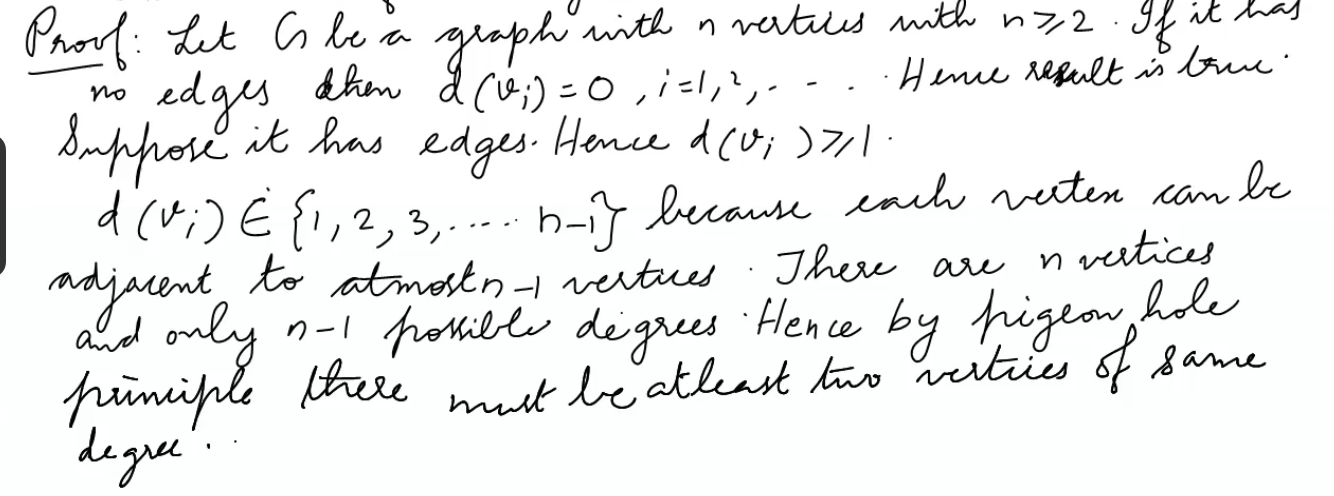 Proof: Let G be a graph with n vertices with n ≥ 2. If it has
no edges then d(vᵢ) = 0, i = 1, 2, - - . Hence result is true.
Suppose it has edges. Hence d(vᵢ) ≥ 1.
d(vᵢ) ∈ {1, 2, 3, ..... n-1} because each vertex can be
adjacent to atmost n-1 vertices. There are n vertices
and only n-1 possible degrees. Hence by pigeon hole
principle there must be atleast two vertices of same
degree..